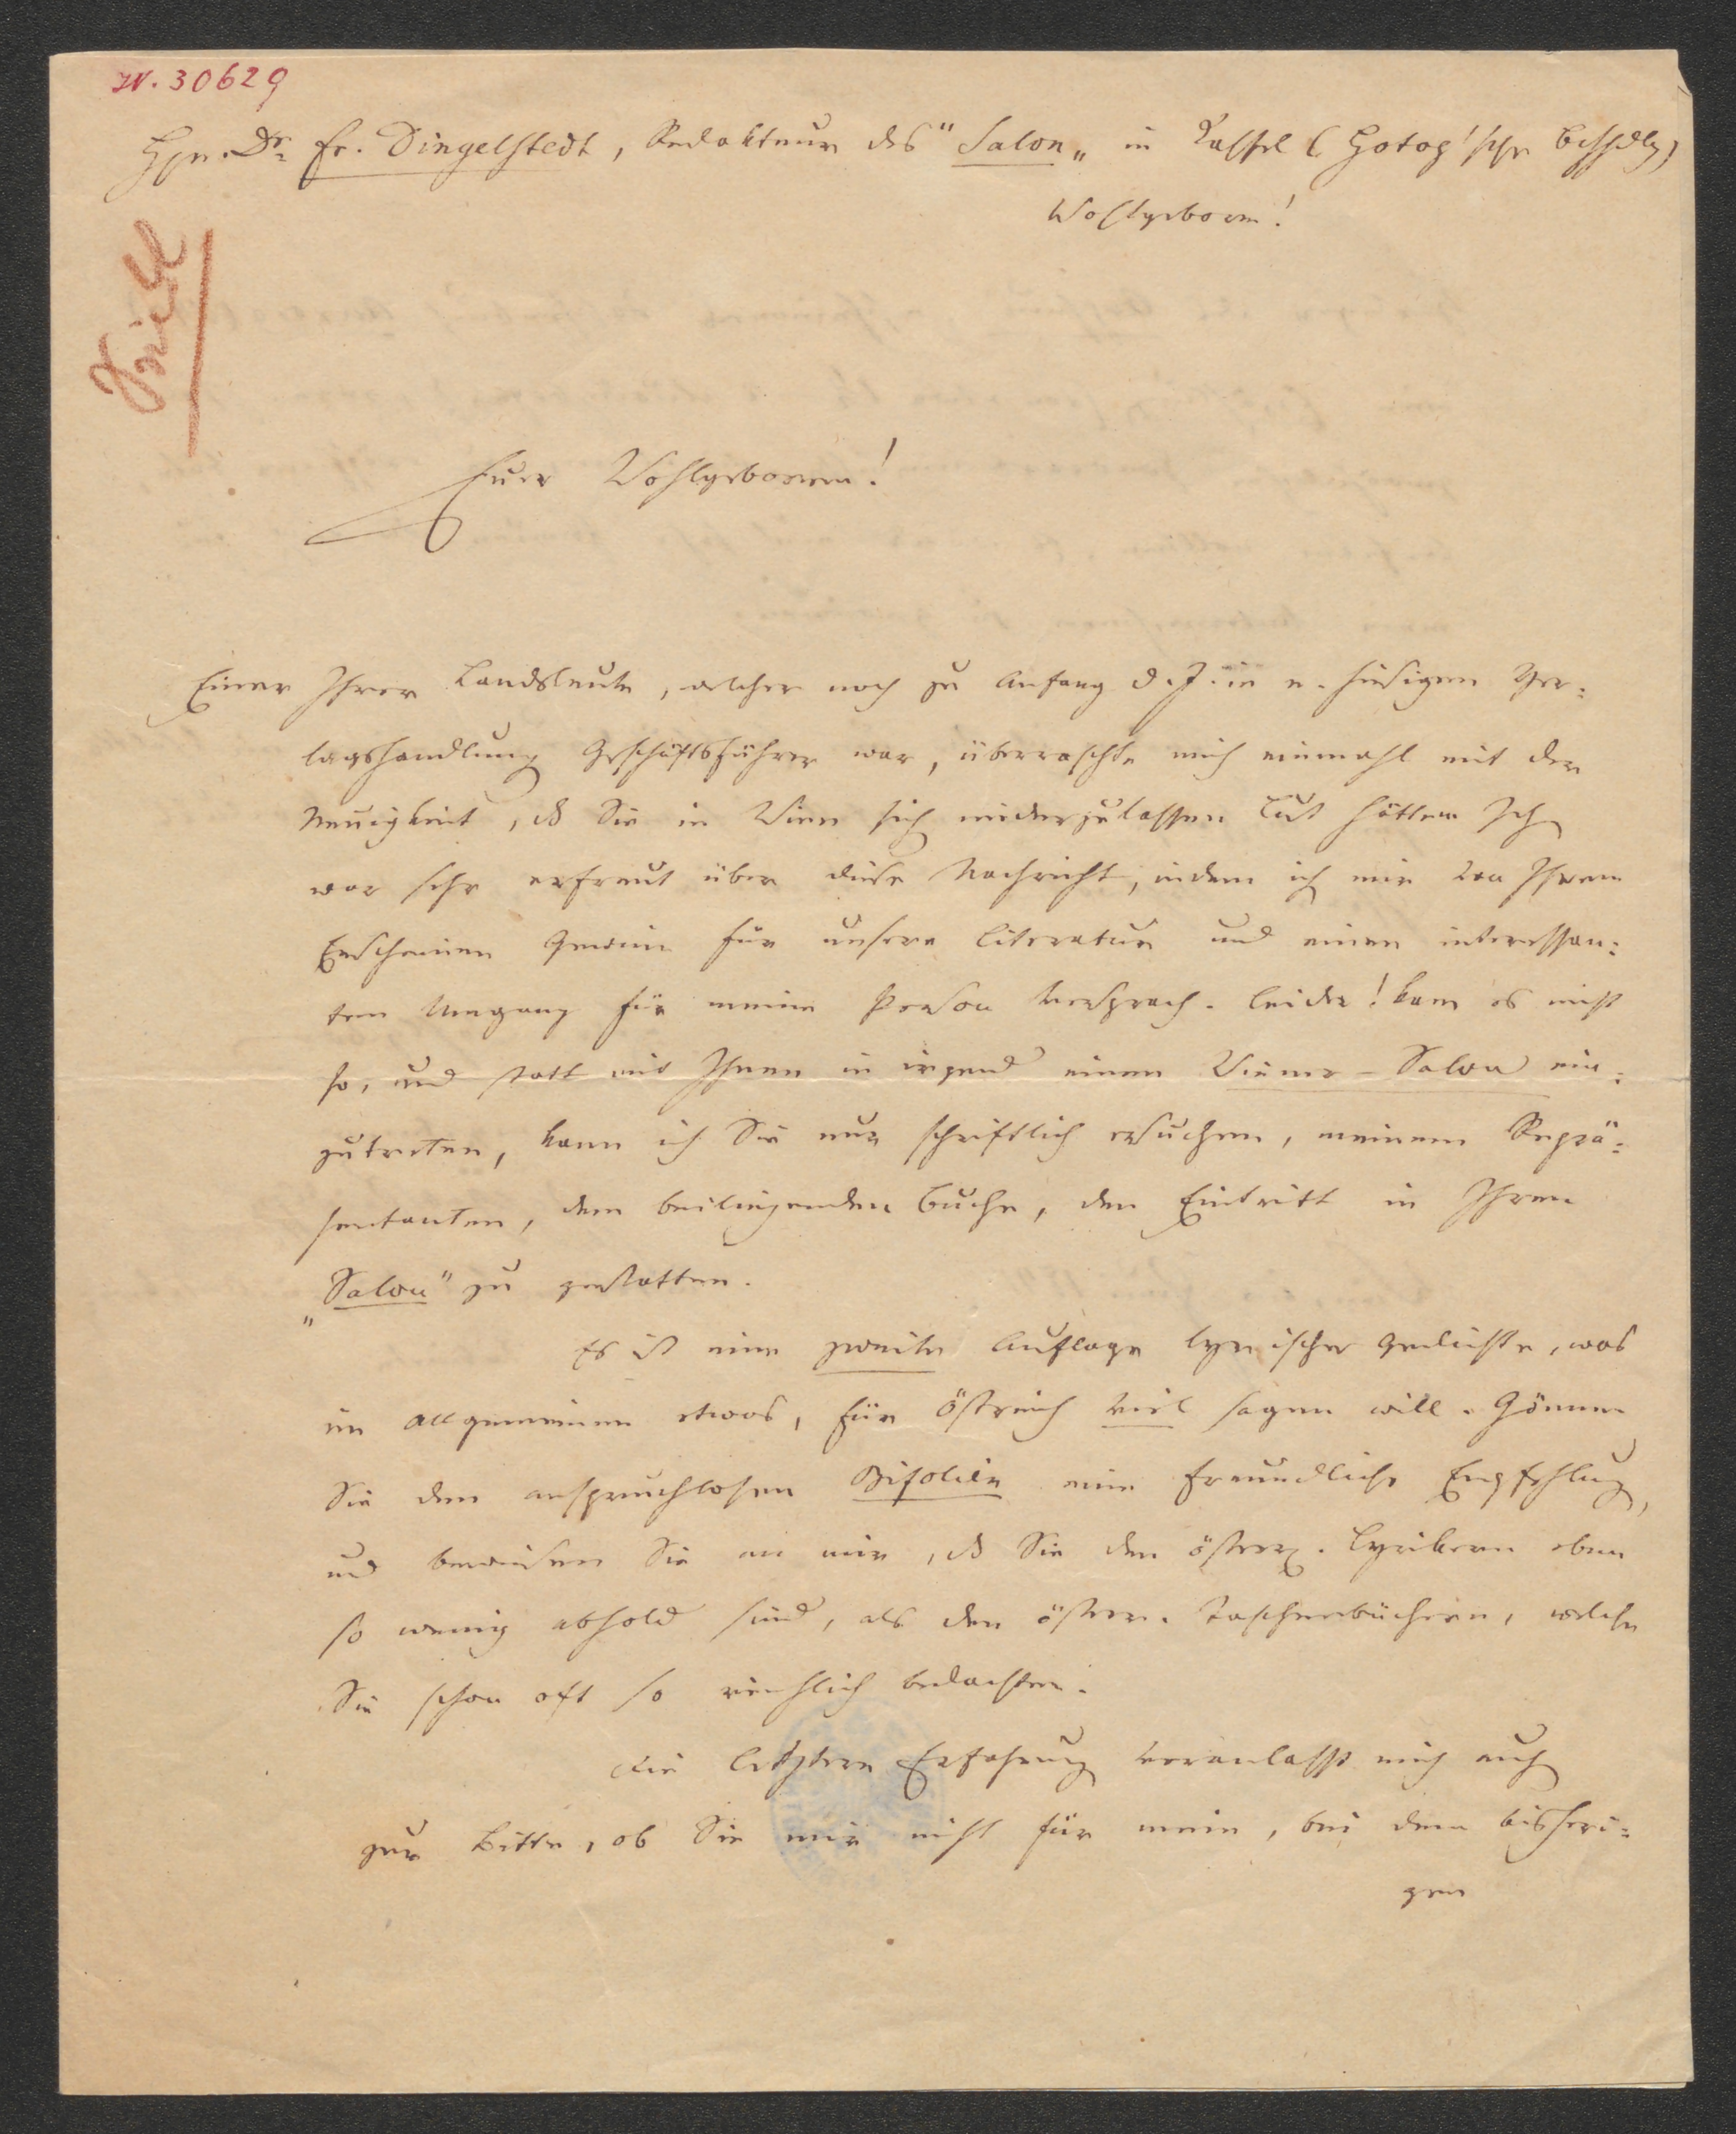 N. 30629
Hrn. Dr. Fr. Dingelstedt, Redakteur des "Salon„ in Kassel (Hotop'sche Bchhdlg)
Wohlgeborn!
Euer Wohlgeboren!
Einer Ihrer Landsleute, welcher noch zu Anfang d. J. in e. hiesigen Ver:
lagshandlung Geschäftsführer war, überraschte mich einmahl mit der
Neuigkeit, dß Sie in Wien sich niederzulassen Lust hätten. Ich
war sehr erfreut über diese Nachricht, indem ich mir von Ihrem
Erscheinen Gewinn für unsere Literatur und einen interessan:
ten Umgang für meine Person versprach. Leider! kam es nicht
so, und statt mit Ihnen in irgend einen Wiener-Salon ein:
zutreten, kann ich Sie nur schriftlich ersuchen, meinem Reprä:
sentanten, dem beiliegenden Buche, den Eintritt in Ihren
„Salon" zu gestatten.
Es ist eine zweite Auflage lyrischer Gedichte, was
im allgemeinen etwas, für Östreich viel sagen will. Gönnen
Sie den anspruchlosen Bifolien eine freundliche Empfehlung,
und beweisen Sie an mir, dß Sie den österr. Lyrikern eben
so wenig abhold sind, als den österr. Taschenbüchern, welche
Sie schon oft so reichlich bedachten.
Die letztere Erfahrung veranlasst mich auch
zur Bitte, ob Sie mir nicht für mein, bei dem bisheri:
gen